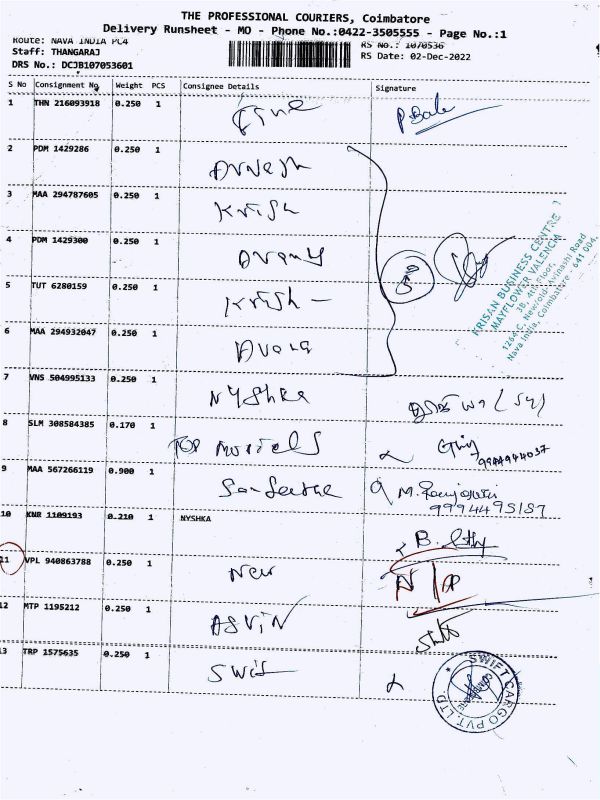 THE PROFESSIONAL COURIERS, Coimbatore
Delivery Runsheet - MO - Phone No.:0422-3505555 - Page No.:1
Route: NAVA INDIA PC4
RS No.: 1070536
Staff: THANGARAJ
RS Date: 02-Dec-2022
DRS No.: DCJB107053601
S No Consignment No Weight PCS Consignee Details Signature
1 THN 216093918 0.250 1
2 PDM 1429286 0.250 1
3 MAA 294787605 0.250 1 Krish
4 PDM 1429300 0.250 1
5 TUT 6280159 0.250 1 Krish -
6 MAA 294932047 0.250 1
KRISAN BUSINESS CENTRE
MAYFLOWER VALENCIA
1264-C, 3B, 4th Floor,
New/old Avinashi Road
Nava India, Coimbatore - 641 004.
7 VNS 504995133 0.250 1 Nyshka
8 SLM 308584385 0.170 1 TOP
9944944037
9 MAA 567266119 0.900 1 Sangeetha
9994495157
10 KNR 1109193 0.210 1 NYSHKA
11 VPL 940863788 0.250 1 New
12 MTP 1195212 0.250 1 ASVIN
13 TRP 1575635 0.250 1 Swift
SWIFT CARGO PVT. LTD.